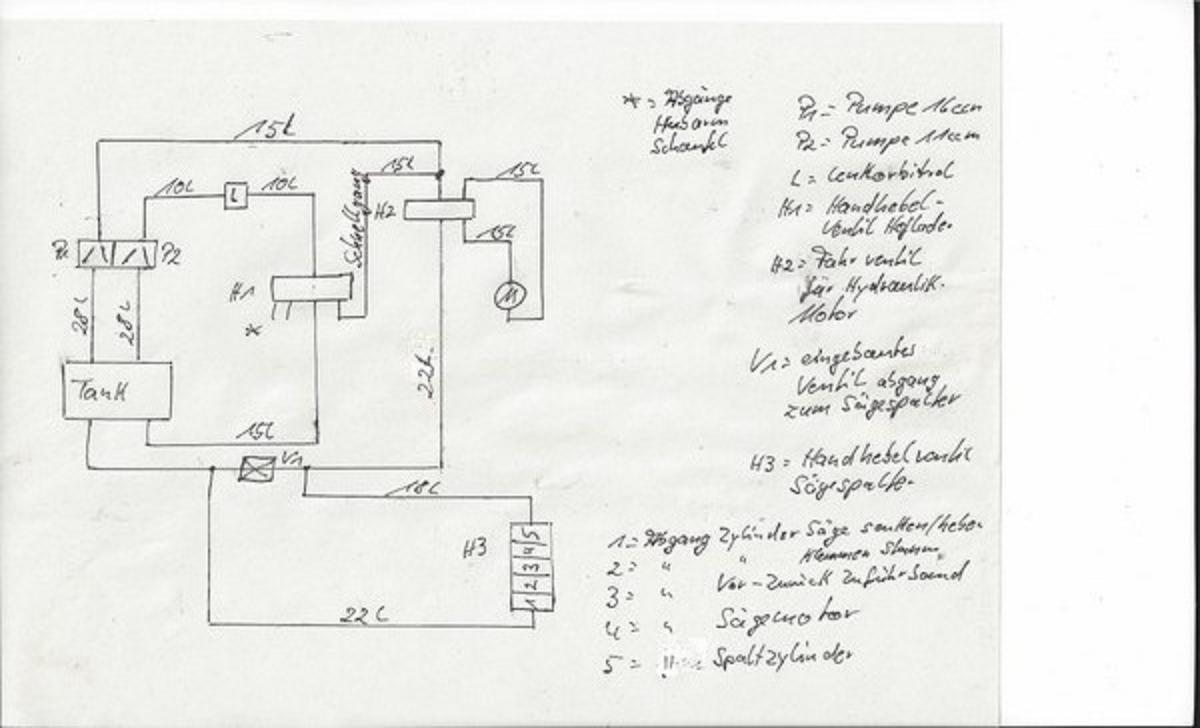 15L
10L
L
10L
15L
15L
H2
Schnellgang
15L
P1
P2
H1
*
M
28L
28L
Tank
22L
15L
V1
18L
H3
1 2 3 4 5
22L
* = Abgänge
Hubarm
Schaufel
P1 = Pumpe 16ccm
P2 = Pumpe 11ccm
L = Lenkorbitrol
H1 = Handhebel-
Ventil Hoflader
H2 = Fahrventil
für Hydraulik-
Motor
V1 = eingebautes
Ventil abgang
zum Sägespalter
H3 = Handhebelventil
Sägespalter
1 = Abgang Zylinder Säge senken/heben
2 = " " Klemmen Stamm
3 = " Vor-Zurück Zuführband
4 = " Sägemotor
5 = Spaltzylinder